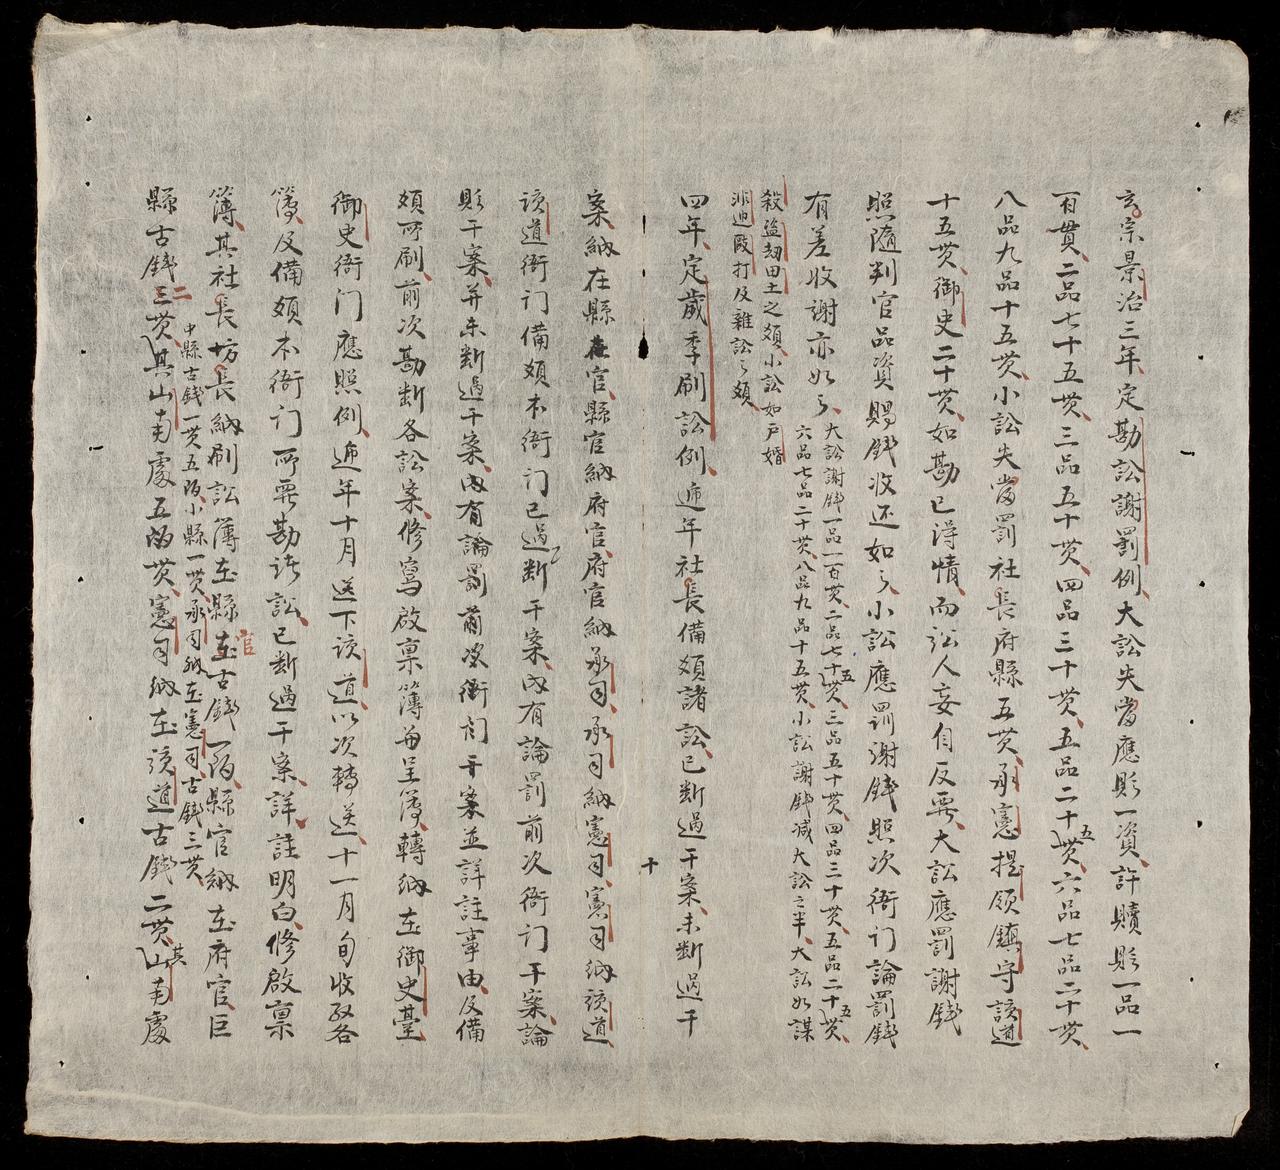 玄宗景治三年定勘訟謝罰例大訟失當應貶一資許贖貶一品一
百貫二品七十五貫三品五十貫四品三十貫五品二十五貫六品七品二十貫
八品九品十五貫小訟失當罰社長府縣五貫承憲提領鎮守該道
十五貫御史二十貫如勘已得情而訟人妄自反要大訟應罰謝錢
照隨判官品資賜錢收还如之小訟應罰謝錢照次衙门論罰錢
有差收謝亦如之大訟謝錢一品一百貫二品七十五貫三品五十貫四品三十貫五品二十五貫
六品七品二十貫八品九品十五貫小訟謝錢减大訟之半大訟如謀
殺盜刼田土之類小訟如戸婚
非迪毆打及雜訟之類
四年定歲季刷訟例遞年社長備類諸訟已断過干案未断過干
案納在縣官縣官納府官府官納承司承司納憲司憲司納該道
該道衙门備類本衙门已過断干案內有論罰前次衙门干案論
貶干案并未断過干案內有論罰前次衙门干案並詳註事由及備
類所刷前次勘断各訟案修寫啟稟簿并呈簿轉納在御史臺
御史衙门應照例遞年十月送下該道以次轉送十一月旬收取各
簿及備類本衙门所要勘諸訟已断過干案詳註明白修啟稟
簿其社長坊長納刷訟簿在縣官在古錢一陌縣官納在府官巨
中縣古錢一貫五陌小縣一貫承司納在憲司古錢三貫
縣古錢二貫其山南處五陌貫憲司納在該道古錢二貫其山南處
十